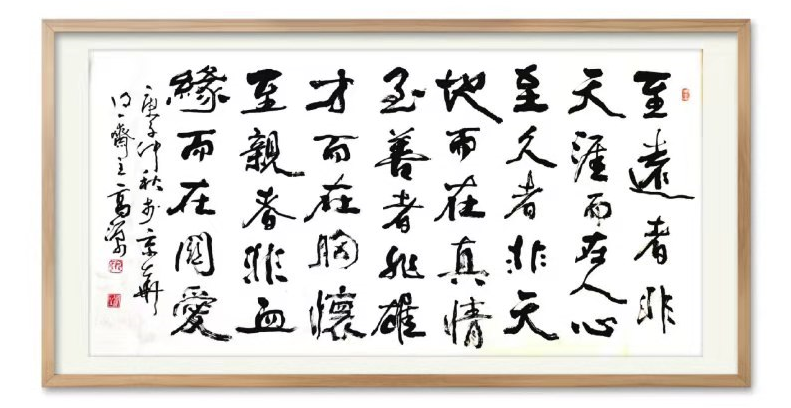 至遠者非
天涯而在人心
至久者非天
地而在真情
至善者非雄
才而在胸懷
至親者非血
緣而在關愛
庚子仲秋於京華
一齋主高